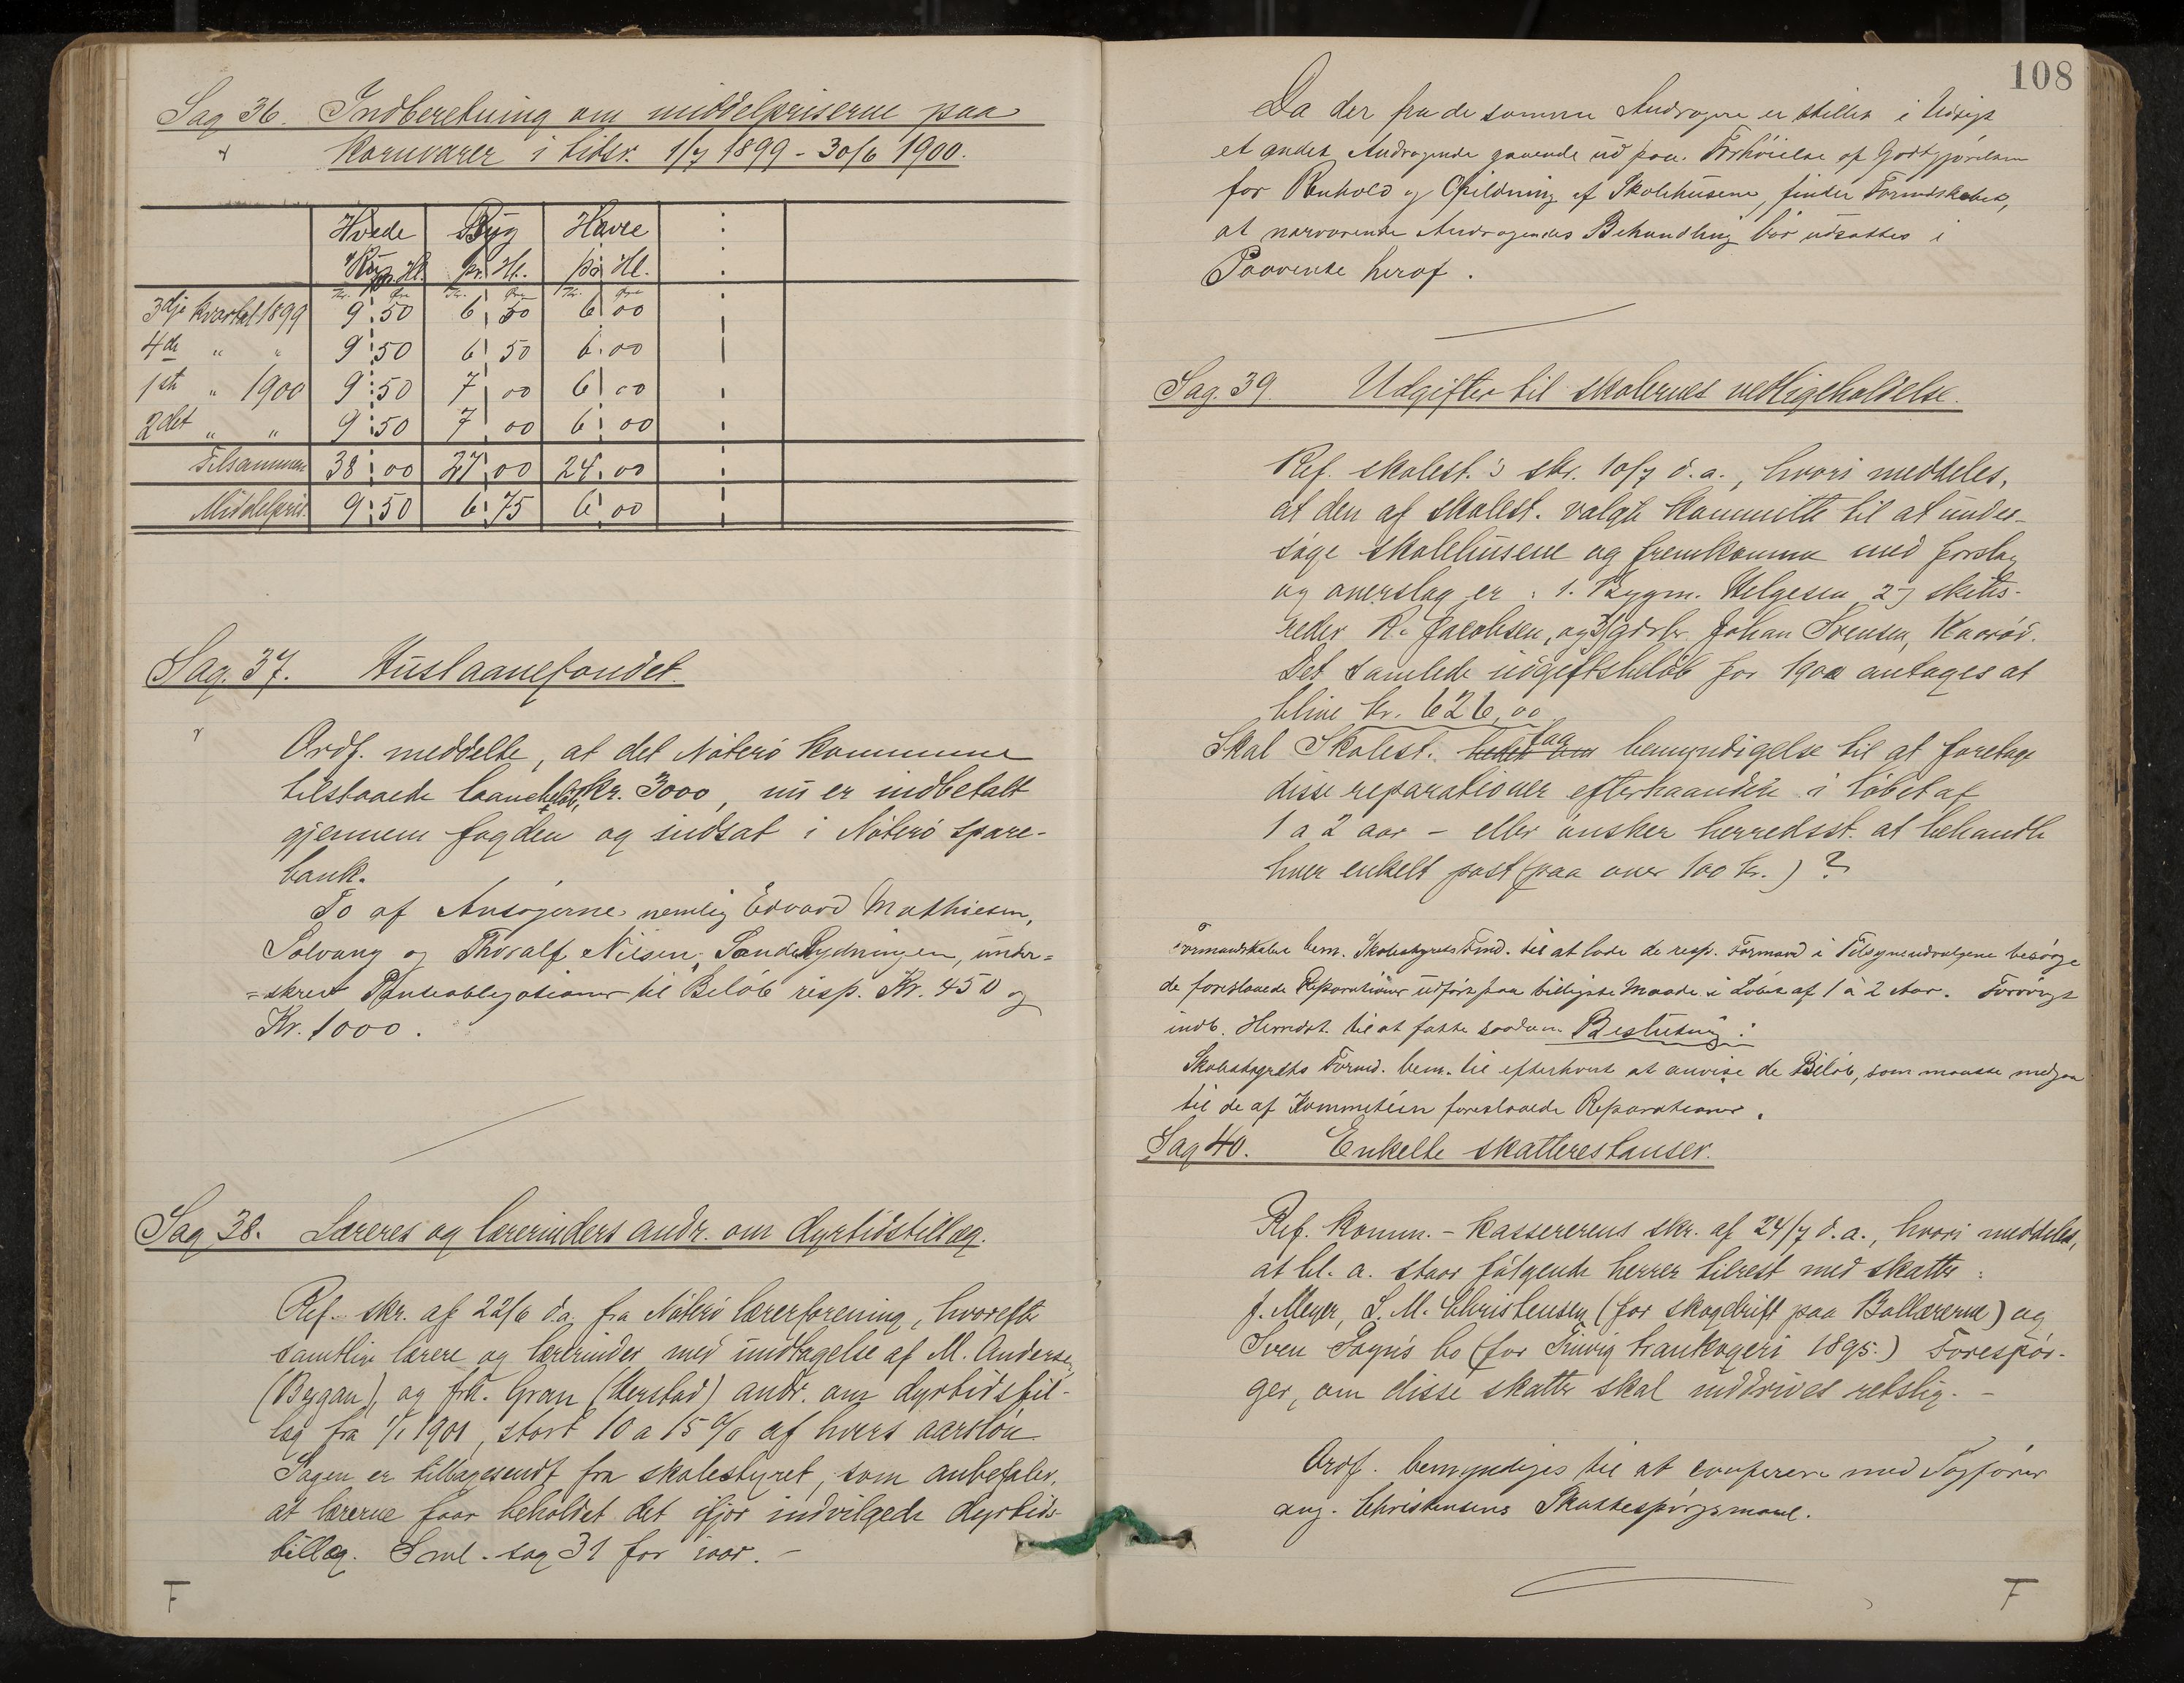 Sag 36. Indberetning om middelpriserne paa
Kornvarer i tidsr. 1/7 1899 - 30/6 1900.
Hvede Byg Havre
pr. Hl. pr. Hl. pr. Hl.
Kr. Øre Kr. Øre Kr. Øre
3dje Kvartal 1899 9 50 6 50 6 00
4de " " 9 50 6 50 6 00
1ste " 1900 9 50 7 00 6 00
2det " " 9 50 7 00 6 00
Tilsammen 38 00 27 00 24 00
Middelpris. 9 50 6 75 6 00
Sag. 37. Huslaanefondet.
Ordf. meddelte, at det Nøterø kommune
tilstaaede laanebeløb, kr. 3000, nu er indbetalt
gjennem fogden og indsat i Nøterø spare-
bank.
To af Ansøgerne, nemlig Edvard Mathiesen,
Solvang og Thoralf Nilsen, Sønde Rydningen, under=
=skrev Panteobligationer til Beløb resp. Kr. 450 og
Kr. 1000.
Sag 38. Læreres og lærerinders andr. om dyrtidstillæg.
Ref. skr. af 22/6 d.a. fra Nøterø lærerforening, hvorefter
samtlige lærere og lærerinder med undtagelse af M. Andersen
(Bergan), og frk. Gran (Herstad) andr. om dyrtidstil-
læg fra 1/1 1901, stort 10 a 15 % af hvers aarsløn.
Sagen er tilbagesendt fra skolestyret, som anbefaler,
at lærerne faar beholdet det ifjor indvilgede dyrtids-
tillæg. Sml. sag 31 for iaar. -
F
108
Da der fra de samme Andragere er stillet i Udsigt
et andet Andragende gaaende ud paa Forhøielse af Godtgjørelsen
for Renhold og Opildning af Skolehusene, finder Formandskabet,
at nærværende Andragendes Behandling bør udsættes i
Paavente heraf.
Sag. 39. Udgifter til skolernes vedligeholdelse.
Ref. skolest.'s skr. 10/7 d.a., hvori meddeles,
at den af skolest. valgte kommitte til at under-
søge skolehusene og fremkomme med forslag
og overslag er: 1. Bygm. Helgesen 2) skibs-
reder R. Jacobsen, og 3) grdbr. Johan Svensen, Kaarød.
Det samlede udgiftsbeløb for 1900 antages at
blive kr. 626,00
Skal Skolest. faa bemyndigelse til at foretage
disse reparationer efterhaanden i løbet af
1 a 2 aar - eller ønsker herredsst. at behandle
hver enkelt post (paa over 100 kr.)?
Formandskabet bem. Skolestyrets Formd. til at lade de resp. Formænd i Tilsynsudvalgene besørge
de foreslaaede Reparationer udført paa billigste Maade i Løbet af 1 à 2 Aar. Forøvrigt
indb. Herredst. til at fatte saadan Beslutning:
Skolestyrets Formd. bem. til efterhvert at anvise de Beløb, som maatte medgaa
til de af Kommiteen foreslaaede Reparationer.
Sag 40. Enkelte skatterestanser.
Ref. Komm.-kassererens skr. af 24/7 d.a., hvori meddeles,
at bl. a. staar følgende herrer tilrest med skatter:
J. Meyer, S. M. Christensen (for skogdrift paa Bollærerne) og
Sven Foyns bo (for Tinvig trankogeri 1895.) Forespør-
ger, om disse skatter skal inddrives retslig. -
Ordf. bemyndiges til at conferere med Sagfører
ang. Christensens Skattespørgsmaal.
F